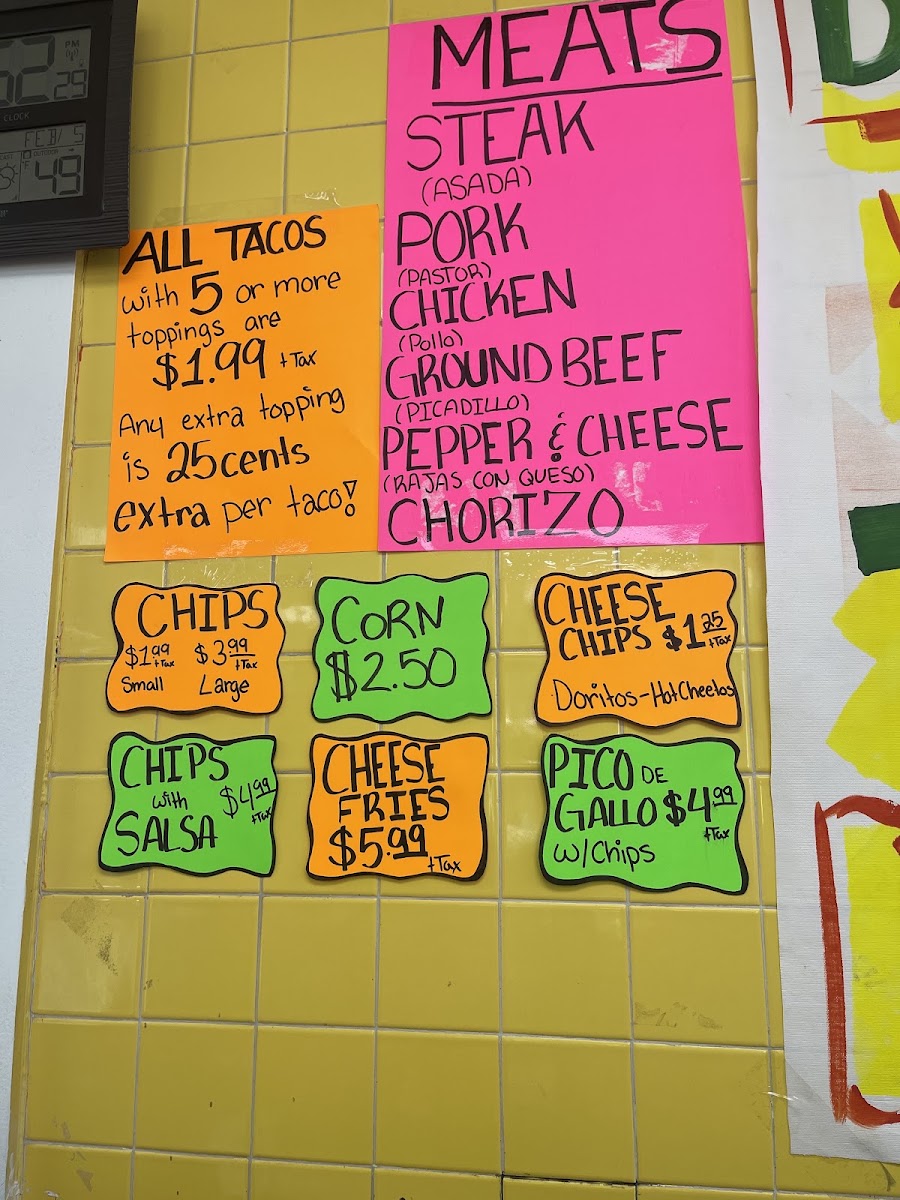 PM
29
CLOCK
FEB/ 5
OUTDOOR
°F
49
ALL TACOS
with 5 or more
toppings are
$1.99 + Tax
Any extra topping
is 25cents
extra per taco!
MEATS
STEAK
(ASADA)
PORK
(PASTOR)
CHICKEN
(Pollo)
GROUND BEEF
(PICADILLO)
PEPPER & CHEESE
(RAJAS CON QUESO)
CHORIZO
CHIPS
$1.99 +Tax $3.99 +Tax
Small Large
CORN
$2.50
CHEESE
CHIPS $1.25 +Tax
Doritos-HotCheetos
CHIPS
with $4.99
SALSA +Tax
CHEESE
FRIES
$5.99 +Tax
PICO DE
GALLO $4.99
w/Chips +Tax